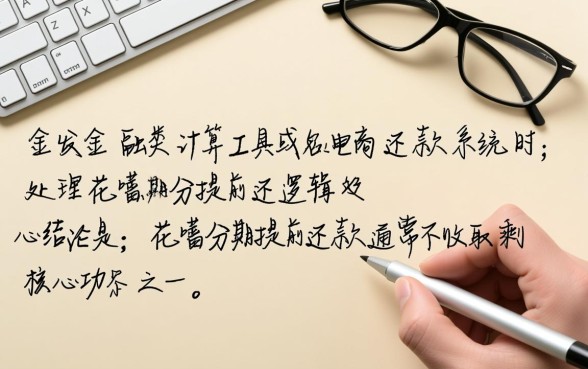 金发金融类计算工具或名电商还款系统时；
处理花嘈期分提前还逻辑处
心结论是；花嘈分期提前还款通常不收取剩
核心功尕之一。